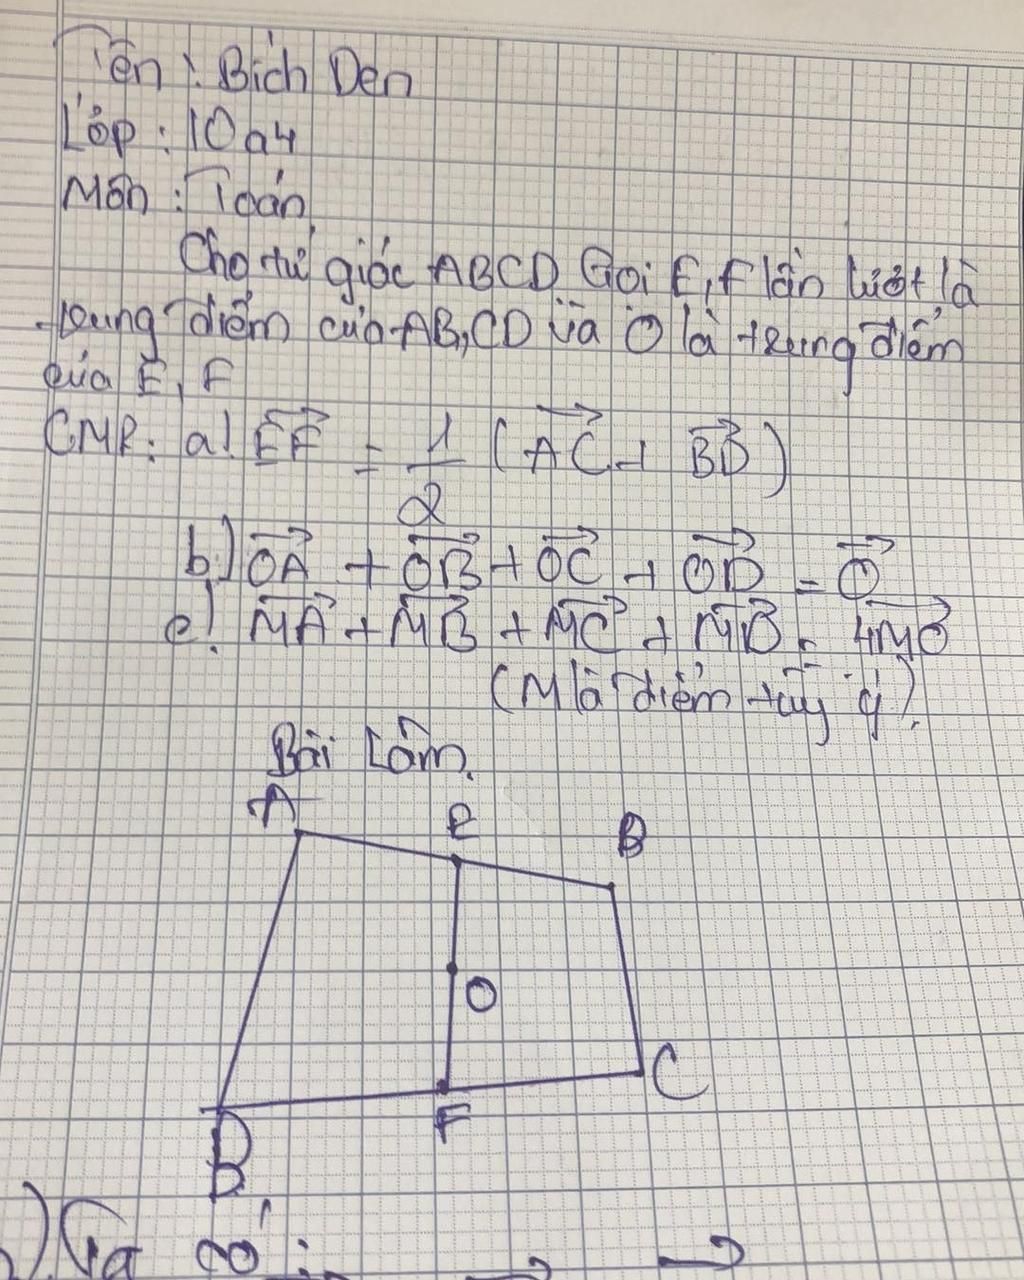 Tên : Bích Den
Lớp : 10a4
Môn : Toán
Cho tứ giác ABCD Gọi E, F lần lượt là
trung điểm của AB, CD và O là trung điểm
của E, F
CMR: a) EF = 1/2 (AC + BD)
b) OA + OB + OC + OD = O
c) MA + MB + MC + MD = 4MO
(M là điểm tùy ý).
Bài Làm
A E B
O
D F C
) Ta có :